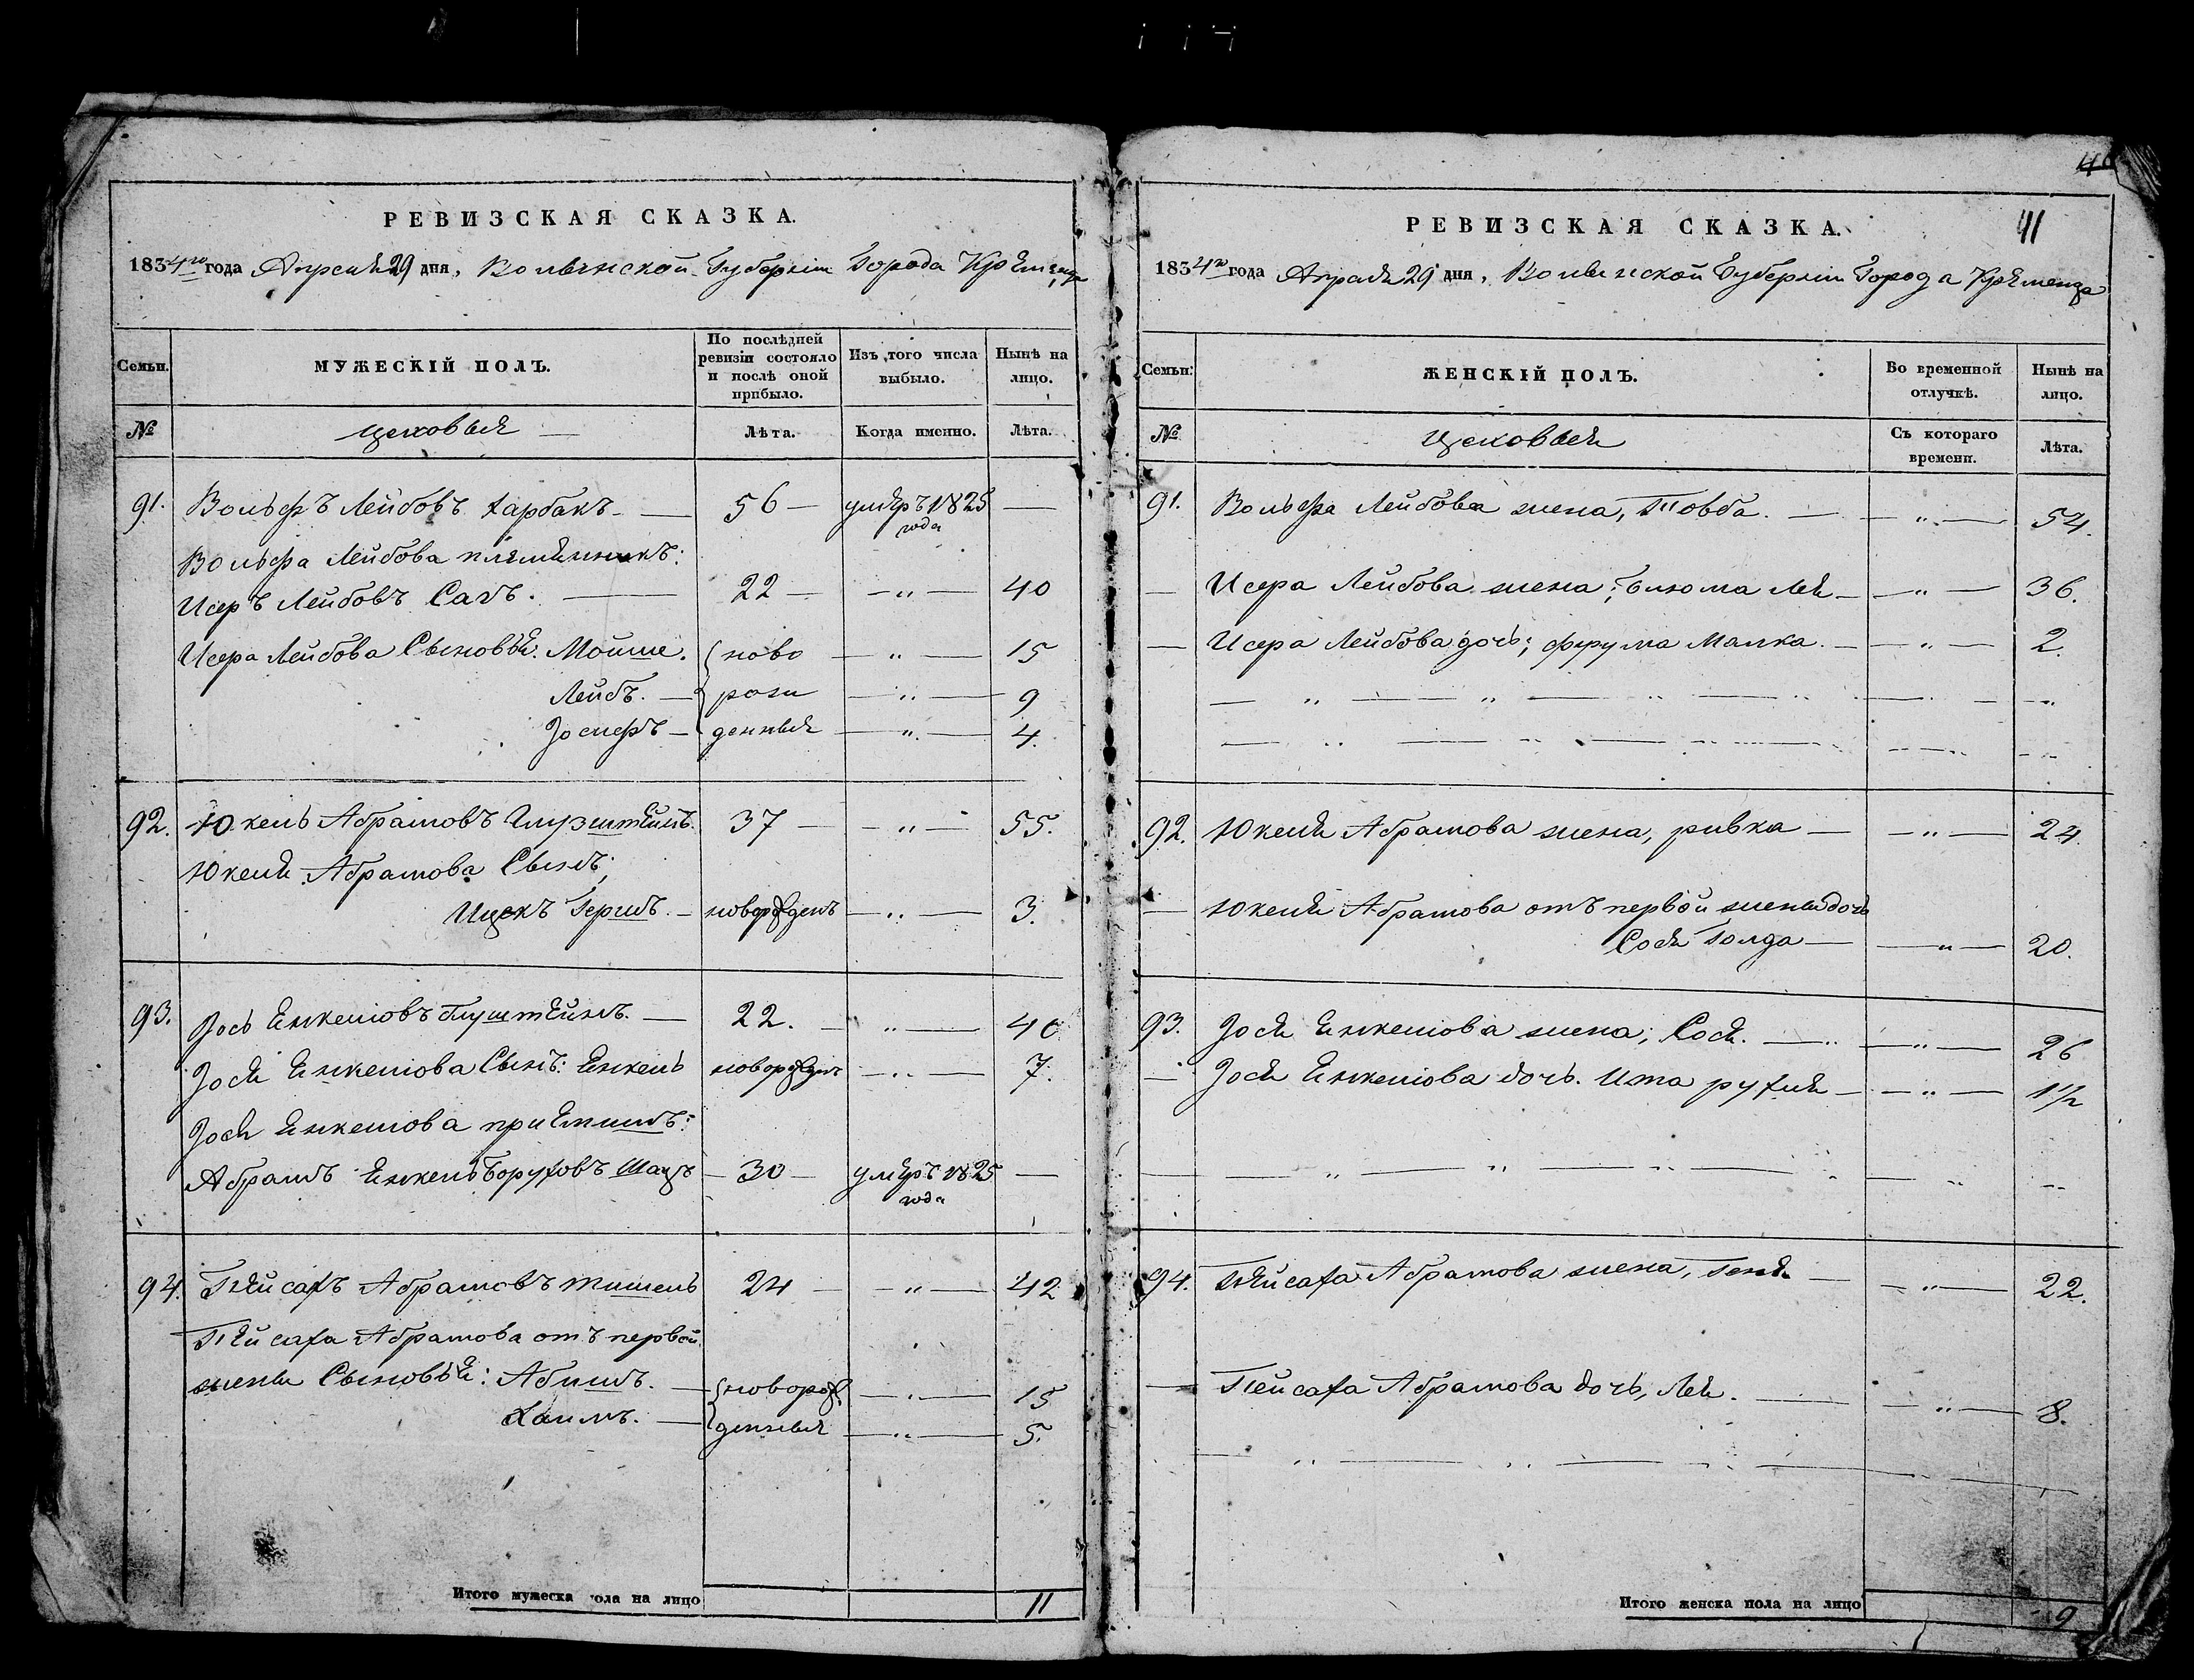 РЕВИЗСКАЯ СКАЗКА.
1834го года Апреля 29 дня, Волынской Губернiи Города Кремянца
Семьи.
МУЖЕСКІЙ ПОЛЪ.
По послѣдней ревизіи состояло и послѣ оной прибыло.
Изъ того числа выбыло.
Нынѣ на лицо.
№
цеховыя
Лѣта.
Когда именно.
Лѣта.
91. Вольфъ Лейбовъ Харбакъ 56 умеръ 1825 года
Вольфа Лейбова племенникъ:
Исеръ Лейбовъ 22 40
Исера Лейбова Сыновья. Мойше. ново 15
Лейбъ. рож 9
Іосифъ денныя 4.
92. Юкель Абрамовъ 37 55.
Юкеля Абрамова Сынъ;
Ицекъ Гершъ. новорожденъ 3.
93. Іось Енкелювъ 22. 40
Іося Енкелюва Сынъ: Енкель новорожденъ 7.
Іося Енкелюва
Абрамъ Енкель Боруховъ Шацъ 30 умеръ 1825 года
94. Пейсахъ Абрамовъ Тишель 24 42
Пейсаха Абрамова отъ первой
жены Сыновья: Абишъ. новорож 15
Хаимъ. денныя 5.
Итого мужеска пола на лицо 11
4
РЕВИЗСКАЯ СКАЗКА.
41
1834го года Апреля 29 дня, Волынской Губернiи Города Кремянца
Семьи.
ЖЕНСКІЙ ПОЛЪ.
Во временной отлучкѣ.
Нынѣ на лицо.
№
цеховыя
Съ котораго времени.
Лѣта.
91. Вольфа Лейбова жена, Товба. 54.
Исера Лейбова жена; Блюма Лея 36.
Исера Лейбова дочь; фрума Малка. 2.
92. Юкеля Абрамова жена, ривка 24.
Юкеля Абрамова отъ первой жены дочь
Сося Голда 20.
93. Іося Енкелюва жена; Сося. 26
Іося Енкелюва дочь. Ита рухля 1½
94. Пейсаха Абрамова жена, Геня 22.
Пейсаха Абрамова дочь, Лея. 8.
Итого женска пола на лицо 9